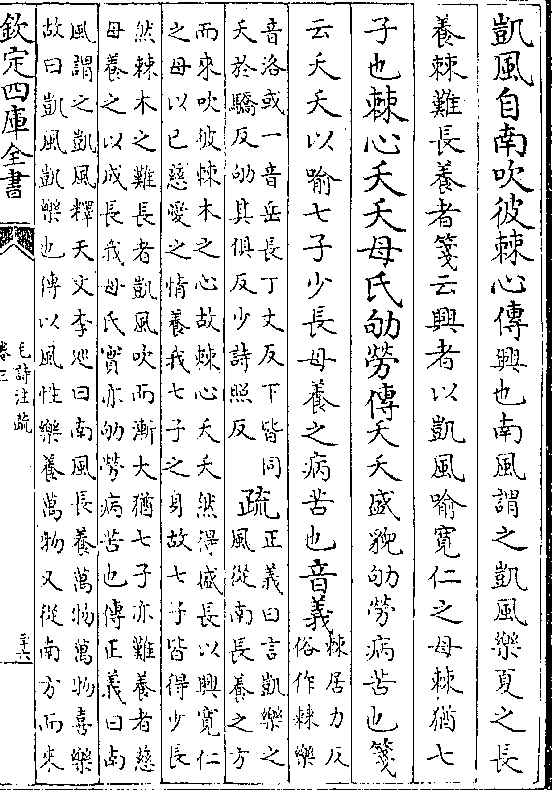 凱風自南吹彼棘心傳興也南風謂之凱風樂夏之長
養棘難長養者箋云興者以凱風喻寛仁之母棘猶七
子也棘心夭夭母氏劬勞傳夭夭盛貌劬勞病苦也箋
云夭夭以喻七子少長母養之病苦也音義棘居力反
俗作棘樂
音洛或一音岳長丁丈反下皆同
夭於驕反劬其俱反少詩照反
疏正義曰言凱樂之
風從南長養之方
而來吹彼棘木之心故棘心夭夭然得盛長以興寛仁
之母以已慈愛之情養我七子之身故七子皆得少長
然棘木之難長者凱風吹而漸大猶七子亦難養者慈
母養之以成長我母氏實亦劬勞病苦也傳正義曰南
風謂之凱風釋天文李廵曰南風長養萬物萬物喜樂
故曰凱風凱樂也傳以風性樂養萬物又從南方而來
欽定四庫全書
毛詩注疏
卷三
三六